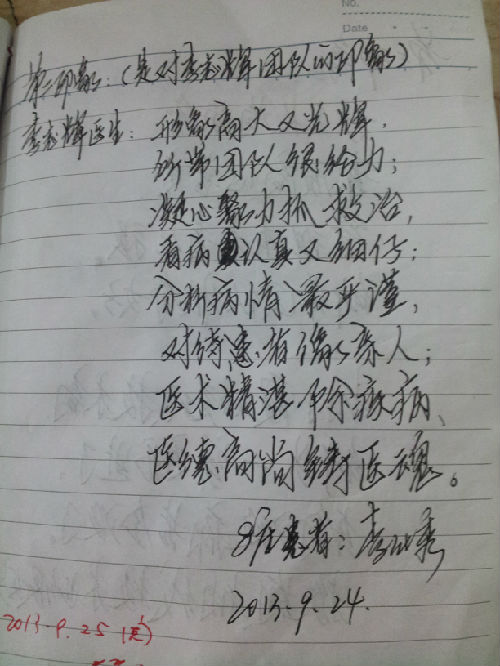 No.
Date
第一印象:(是对李志辉团队的印象)
李志辉医生: 形象高大又光辉,
所带团队很给力;
凝心聚力抓救治,
看病认真又细仔;
分析病情最严谨,
对待患者像亲人;
医术精湛除疾病、
医德高尚铸医魂。
8床患者:李 秀
2013.9.24.
2013.9.25